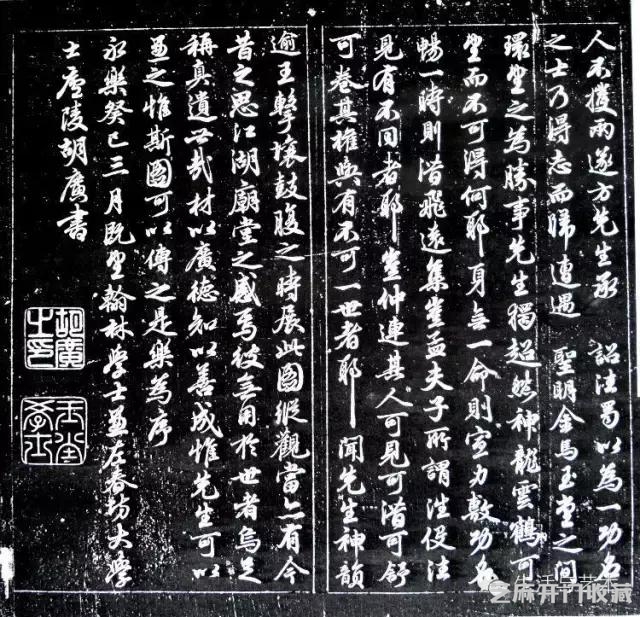 人不獲兩遂方先生承 詔法蜀以為一功名
之士乃得志而歸遭遇 聖明金馬玉堂之間
環望之為勝事先生獨超然神龍雲鶴可
望而不可得何耶身無一命則寄力數功名
暢一時則潛飛遠集豈孟夫子所謂法俟法
見有不同者耶豈仲連其人可見可潛可舒
可卷其權與有不可一世者耶聞先生神韻
逾王擊壤鼓腹之時展此圖縱觀當亦有今
昔之思江湖廟堂之感焉彼無用於世者烏足
稱真遺世哉材以廣德知以善成惟先生可以
並之惟斯圖可以傳之是樂為序
永樂癸巳三月既望翰林學士兼左春坊大學
士廬陵胡廣書
胡廣
芝麻開門收藏